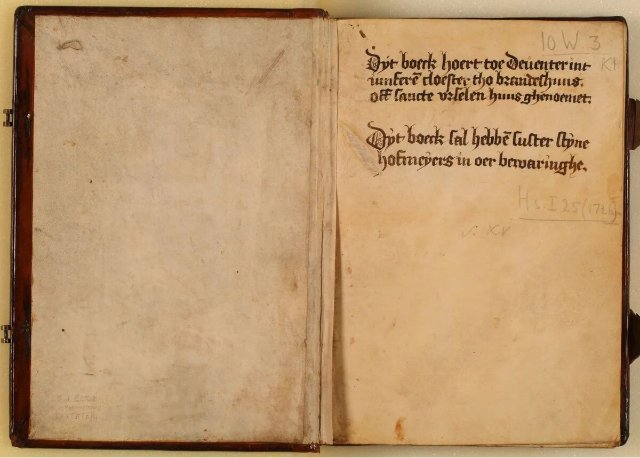 10 W 3
K1
Dÿt boeck hoert toe Deuenter int
iunferē cloester tho brandeshuus.
off sancte vrselen huus ghenoemet.
Dÿt boeck sal hebbē suster stÿne
hofmeÿers in oer bewaringhe.
Hs I 25 (1721)
s. XV